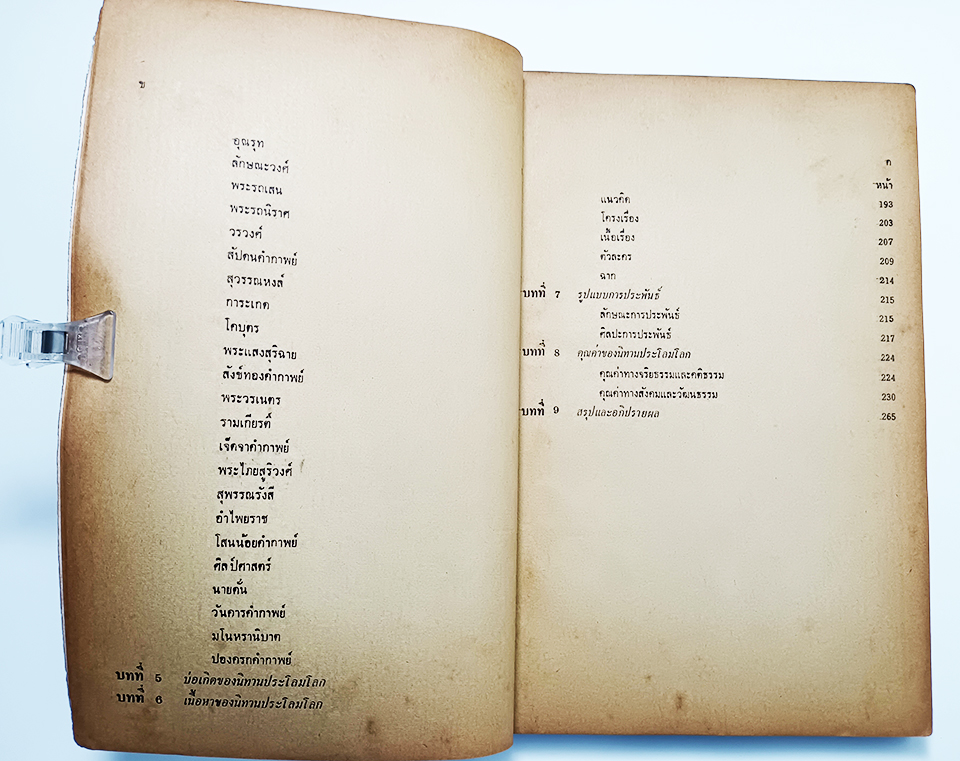 ข
อุณรุท
ลักษณะวงศ์
พระรถเสน
พระรถนิราศ
วรวงศ์
สัปดนคำกาพย์
สุวรรณหงส์
การะเกด
โคบุตร
พระแสงสุริฉาย
สังข์ทองคำกาพย์
พระวรเนตร
รามเกียรติ์
เจ็ดจาคำกาพย์
พระไภยสูริวงศ์
สุพรรณรังสี
อำไพยราช
โสนน้อยคำกาพย์
ศิลป์ศาสตร์
นายดั่น
วันคารคำกาพย์
มโนหรานิบาต
ปองครกคำกาพย์
บทที่ 5 บ่อเกิดของนิทานประโลมโลก
บทที่ 6 เนื้อหาของนิทานประโลมโลก
ค
หน้า
แนวคิด 193
โครงเรื่อง 203
เนื้อเรื่อง 207
ตัวละคร 209
ฉาก 214
บทที่ 7 รูปแบบการประพันธ์ 215
ลักษณะการประพันธ์ 215
ศิลปะการประพันธ์ 217
บทที่ 8 คุณค่าของนิทานประโลมโลก 224
คุณค่าทางจริยธรรมและคติธรรม 224
คุณค่าทางสังคมและวัฒนธรรม 230
บทที่ 9 สรุปและอภิปรายผล 265